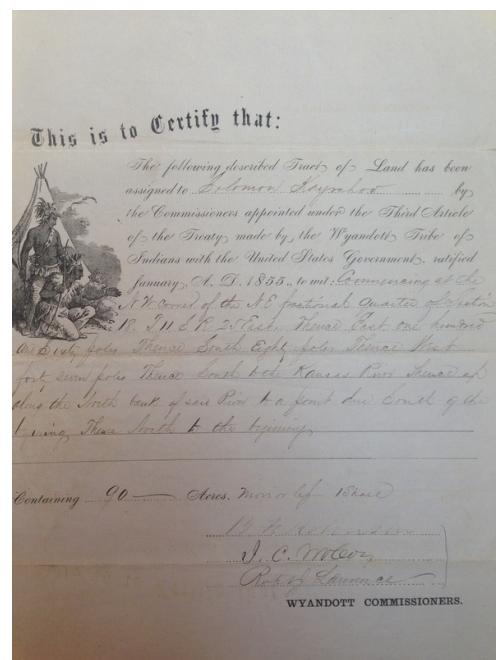 This is to Certify that:
The following described Tract of Land has been
assigned to Solomon Kayrahoo by
the Commissioners appointed under the Third Article
of the Treaty made by the Wyandott Tribe of
Indians with the United States Government, ratified
January, A. D. 1855, to wit: Commencing at the
N.W. Corner of the N.E fractional Quarter of Section
18. T 11 S R 25 East. Thence East one hundred
and Sixty poles Thence South Eighty poles Thence West
forty seven poles Thence South to the Kansas River Thence up
along the North bank of said River to a point due South of the
Thence North to the begining
Containing 90 Acres. More or less 1 Share
Robinson
J. C. McCoy
Robt J Lawrence
WYANDOTT COMMISSIONERS.